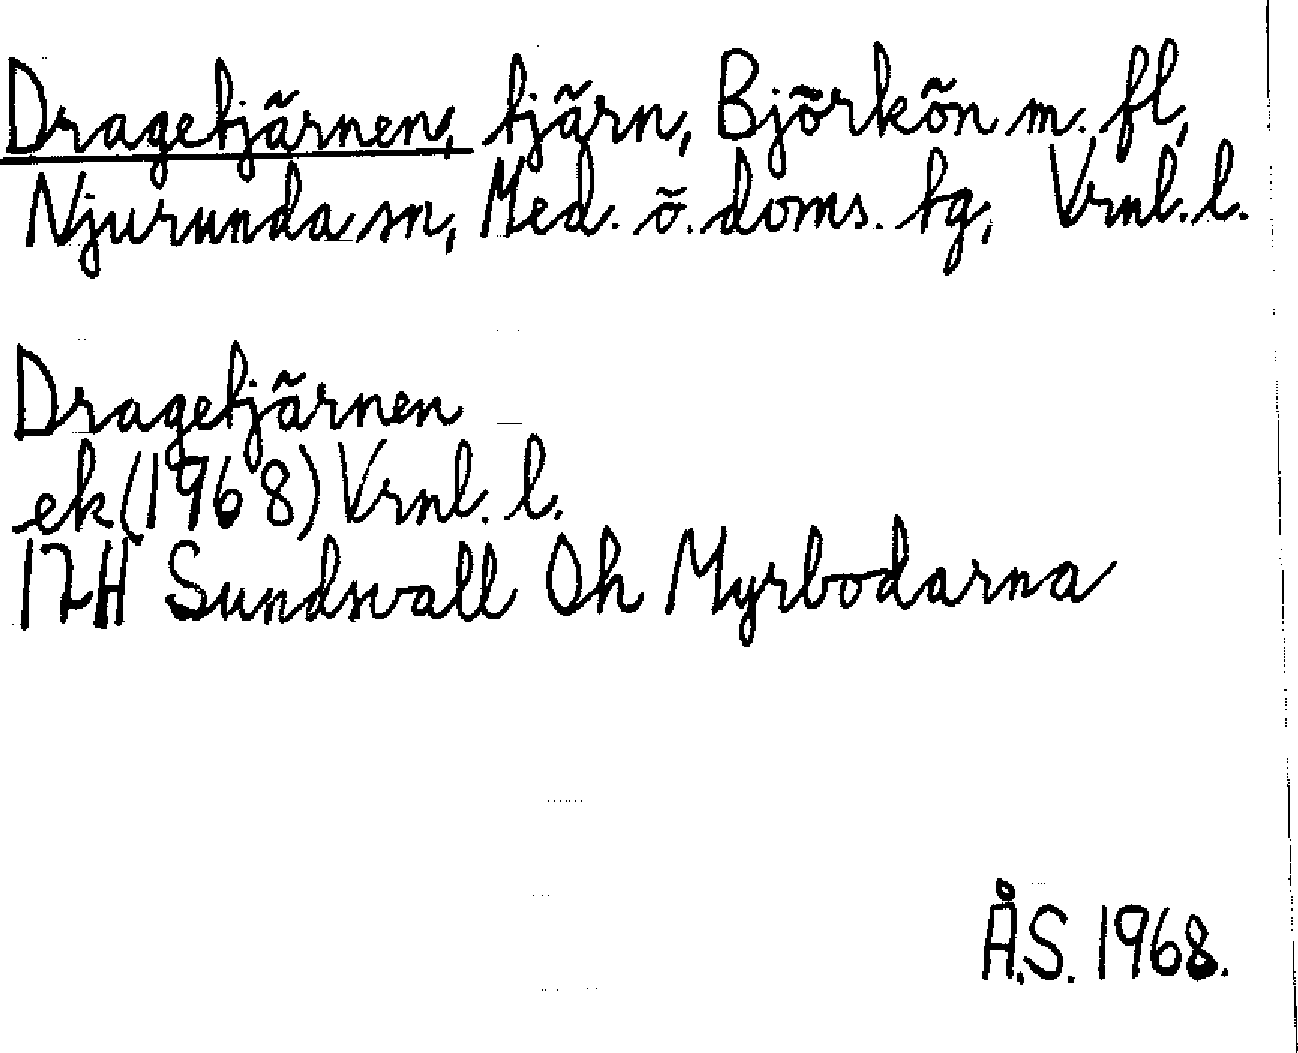 Dragetjärnen, tjärn, Björkön m. fl,
Njurunda sn, Med. ö. doms. tg, Vrnl. l.
Dragetjärnen
ek (1968) Vrnl. l.
17H Sundsvall 0h Myrbodarna
Å.S. 1968.